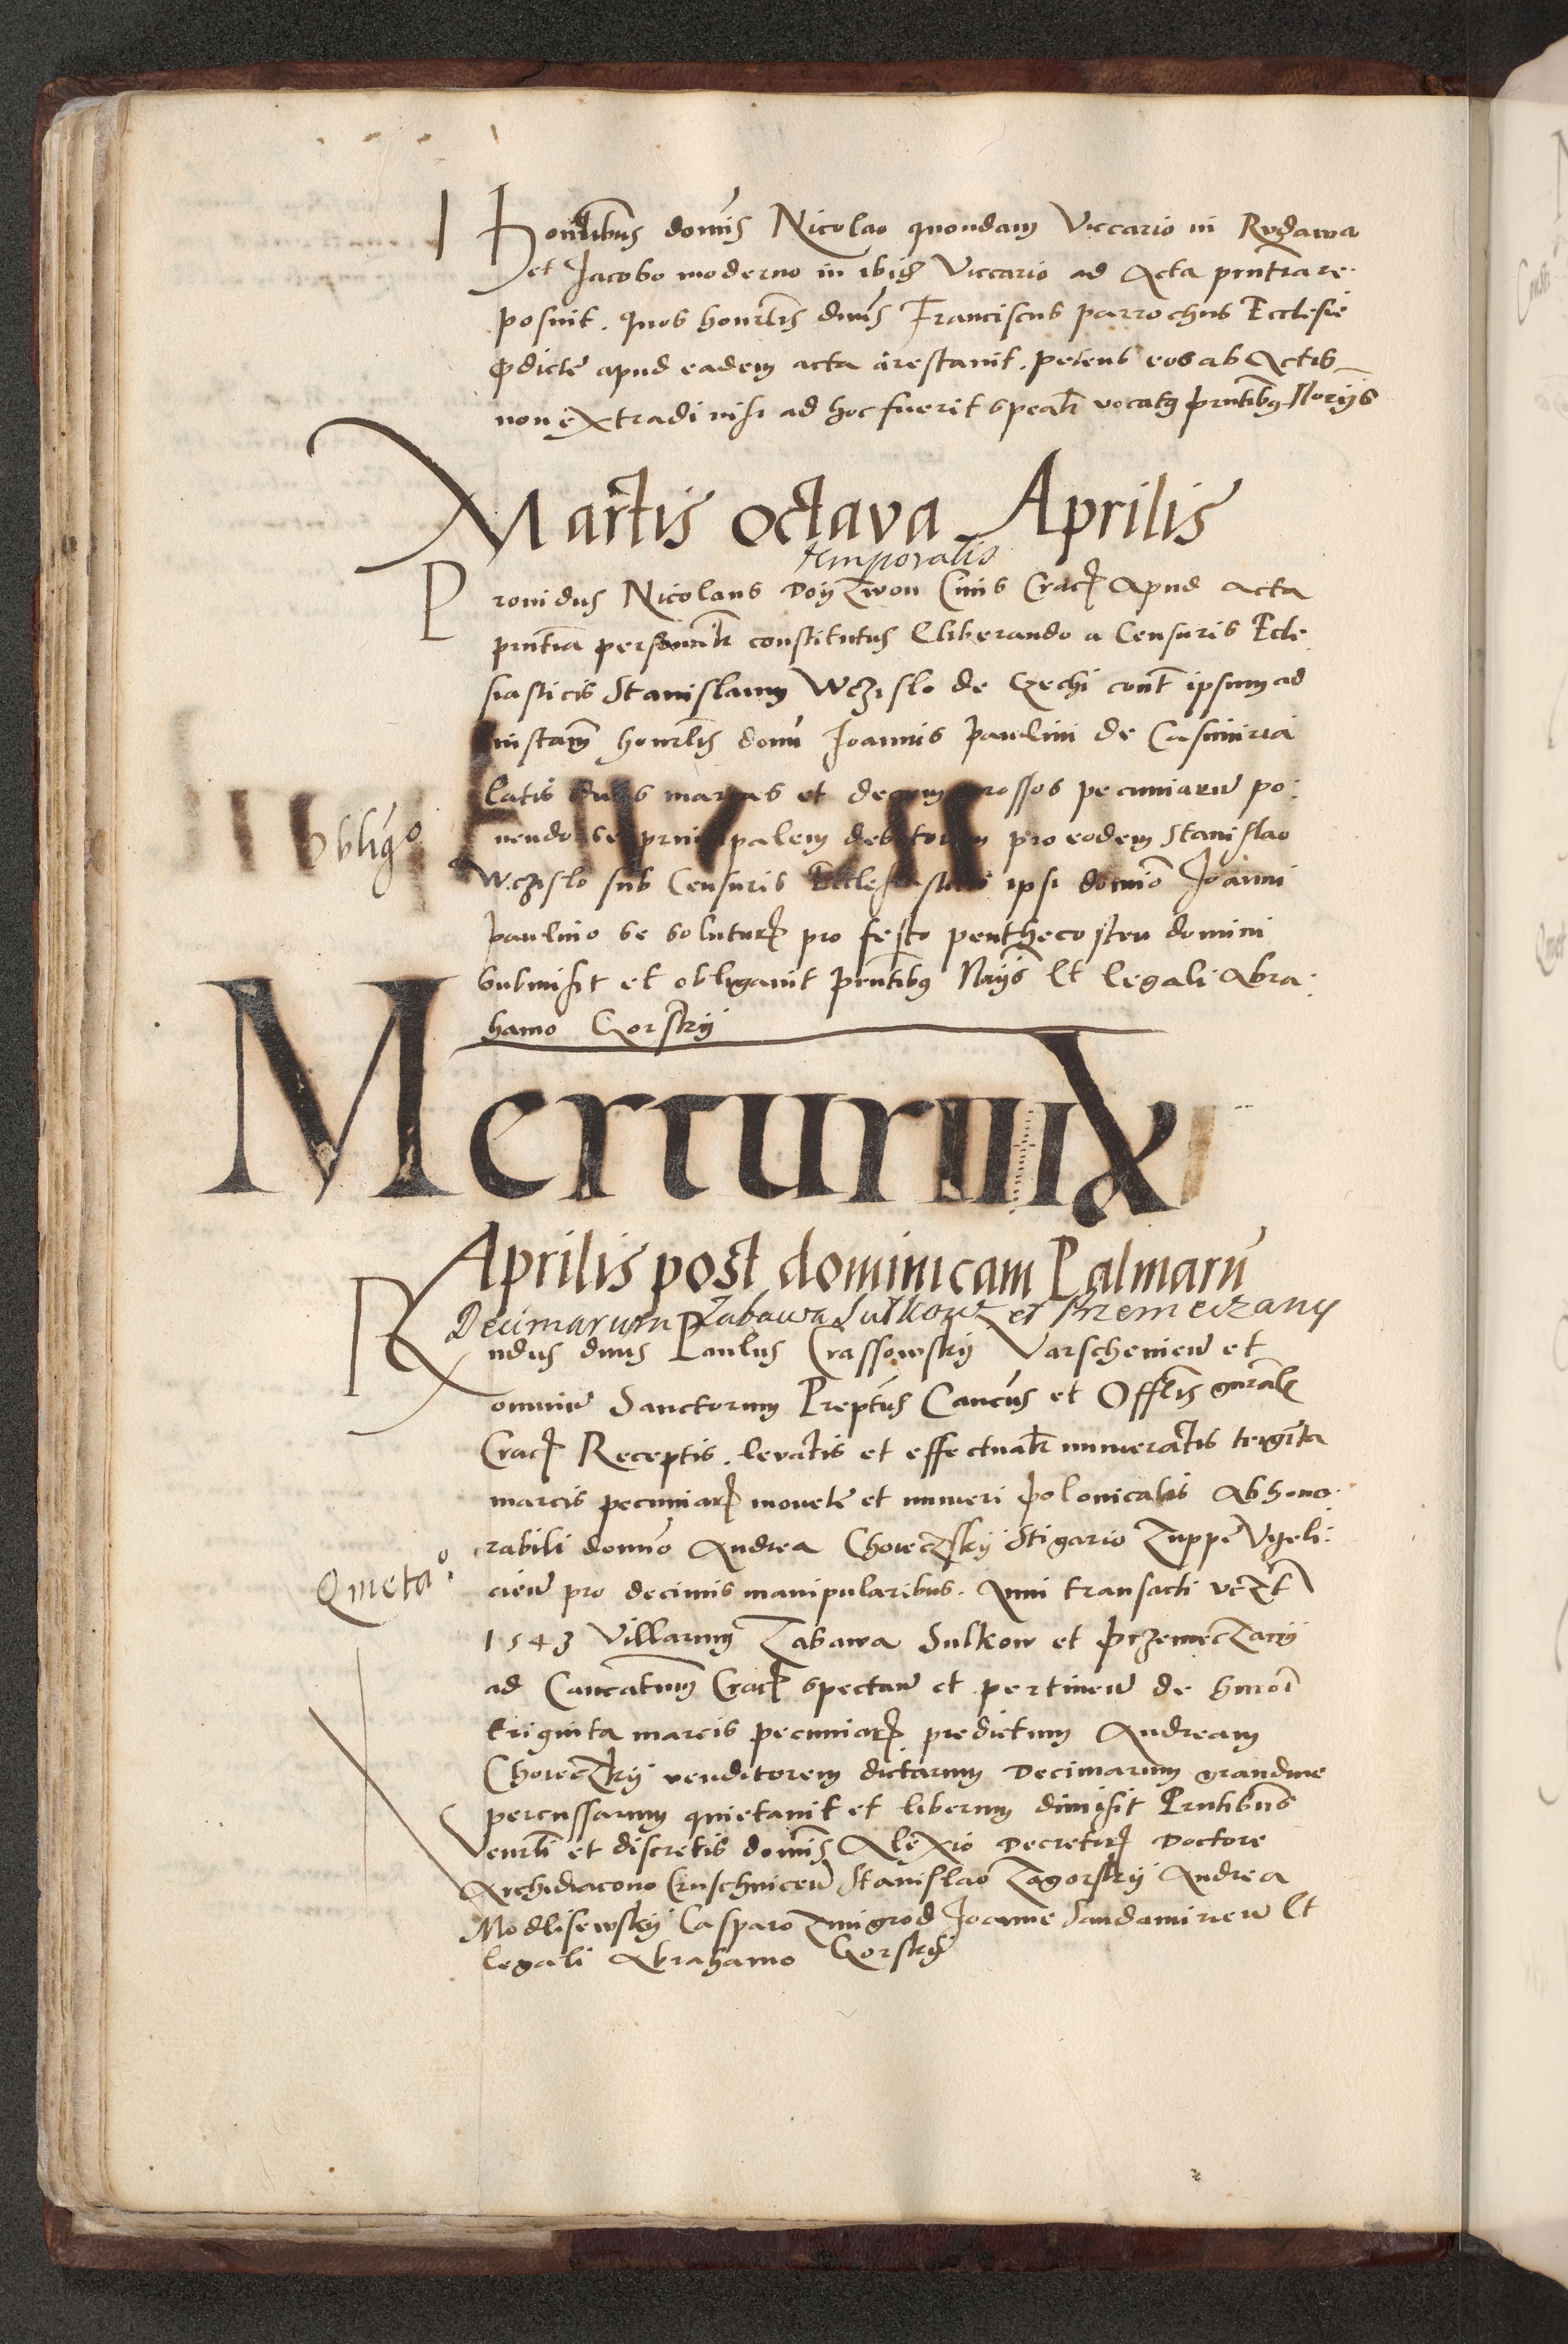 Honorabilibus domīs Nicolao quondam Viccario in Rvdawa
et Jacobo moderno in ibidē Viccario ad Acta pntia re-
posuit. quos honorabilis dnūs Franciscus parrochus Ecclesie
pdicte apud eadem acta arestavit. petens eos ab Actis
non extradi nisi ad hoc fuerit specialr vocatus pntibus Norijs
Martis octava Aprilis
temporalis
Providus Nicolaus Doyzwon Civis Crac apud acta
pntia personalr constitutus Eliberando a Censuris Eccle-
siasticis Stanislaum Wczislo de Czechi cont ipsum ad
instam honorlis domī Joannis Paulini de Casimiria
latis duas marcas et decem grossos pecuniarū po-
nendo se principalem debitorem pro eodem Stanislao
Obligo
Wczislo sub Censuris Ecclesiasticis ipsi domino Joanni
paulino se soluturū pro festo penthecosten domini
submisit et obligavit pntibus Norijs Et legali Abra-
hamo Gorskij
Mercurii IX
Aprilis post dominicam Palmarū
Decimarum Zabawa Sulkow et Przemeczany
Rndus dnus Paulus Crassowskij Varschevien et
omniū Sanctorum Preptus Cancus et Offlis gnralis
Crac Receptis. levatis et effectualr numeratis triginta
marcis pecuniarū monete et numeri polonicalis Ab hono-
rabili domino Andrea Choieczskij Stigario Zuppe Vyeli-
Quieta.o
cien pro decimis manipularibus. Anni transacti vezt
1543 Villarum Zabawa Sulkow et Przemeczany
ad Cancatum Crac spectan et pertinen de hmoi
triginta marcis pecuniarū predictum Andream
Choieczkij venditorem dictarum Decimarum grandine
percussarum quietavit et liberum dimisit Pntibus
Venrli et discretis domis Alexio Decretorū Doctore
Archidiacono Cruschvicen Stanislao Zagorskij Andrea
Modlisewskij Casparo Zmigrod Joanne Sandamirien Et
legali Abrahamo Gorskij